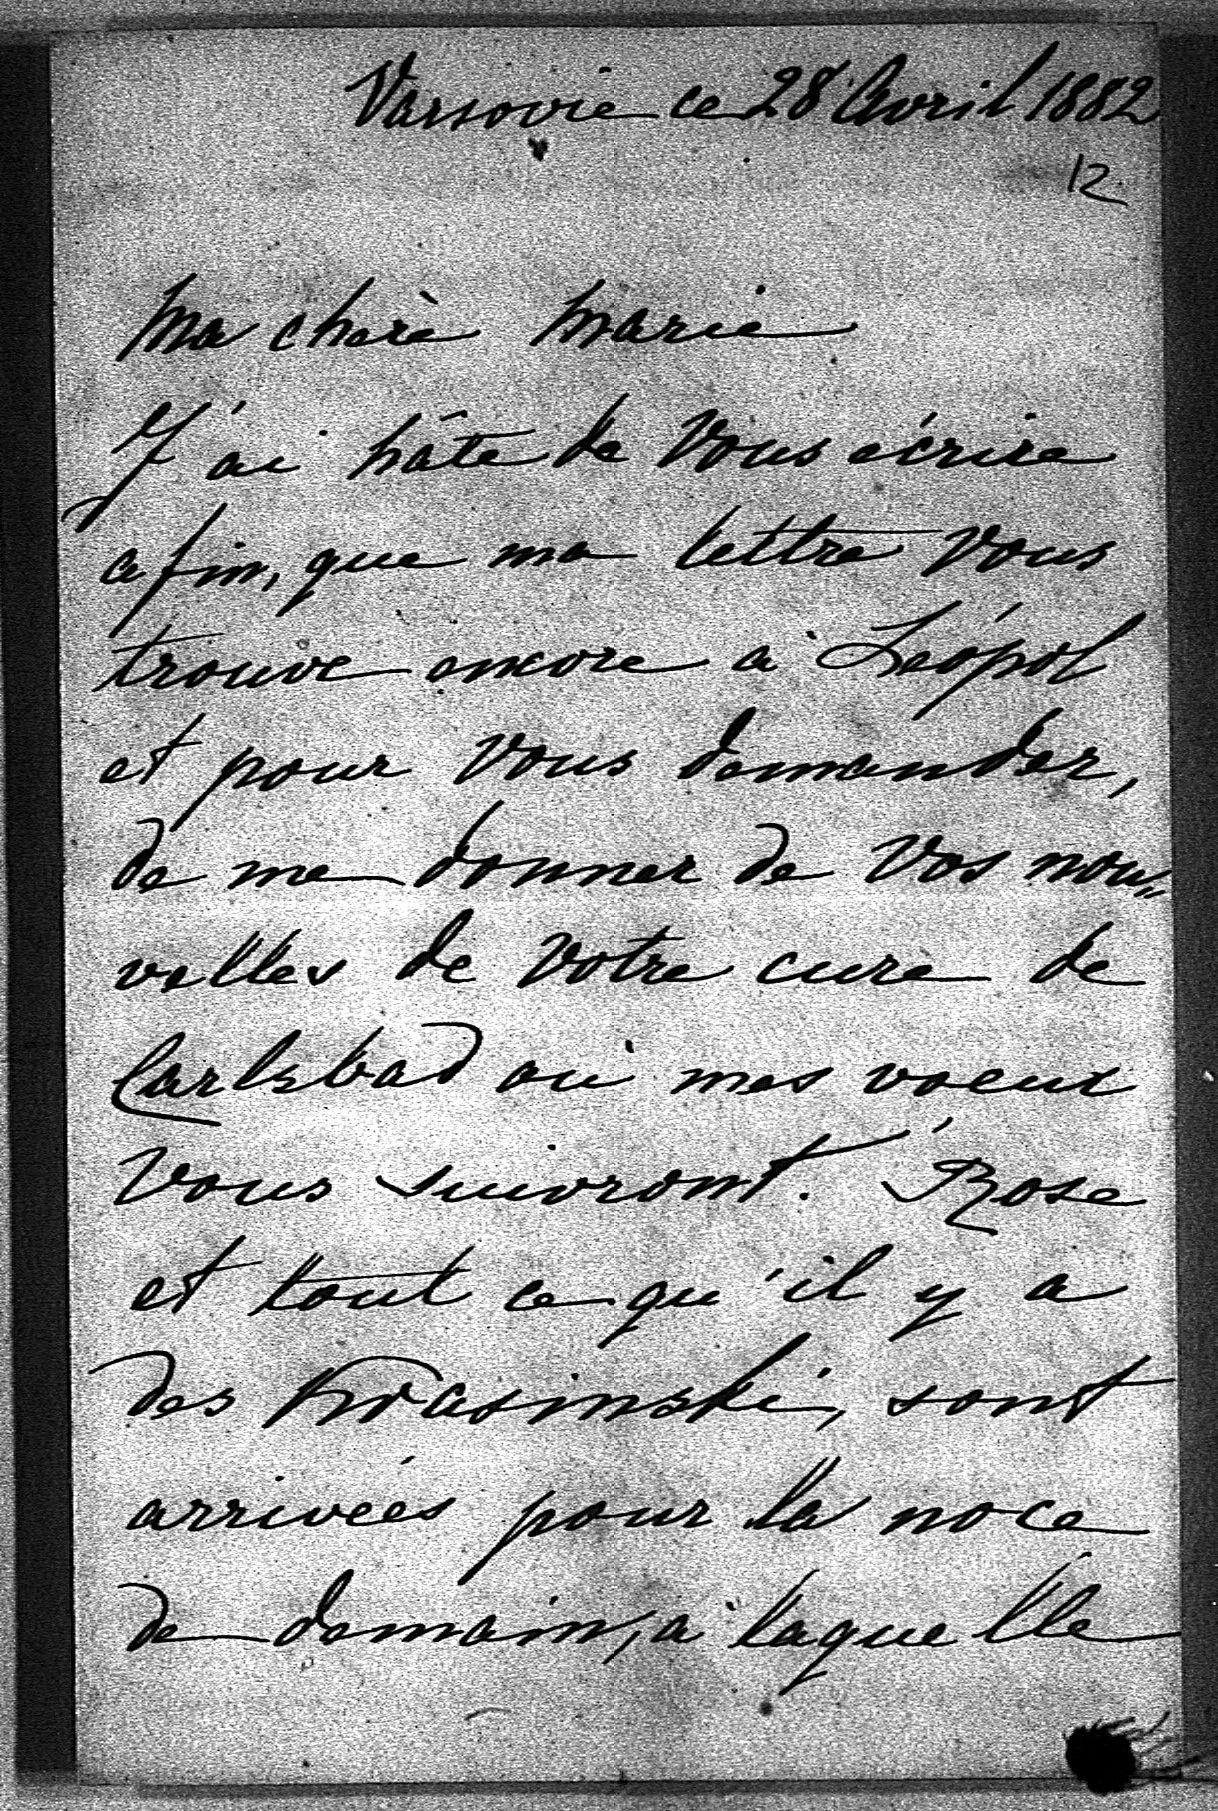 Varsovie ce 28 Avril 1882
12
Ma chère Marie
J'ai hâte de Vous écrire
afin, que ma lettre Vous
trouve encore à Léopol
et pour Vous demander,
de me donner de Vos nou„
velles de Votre cure de
Carlsbad où mes voeux
Vous suivront. Rose
et tout ce qu'il y a
des Krasinski, sont
arrivées pour la noce
de demain, à laquelle